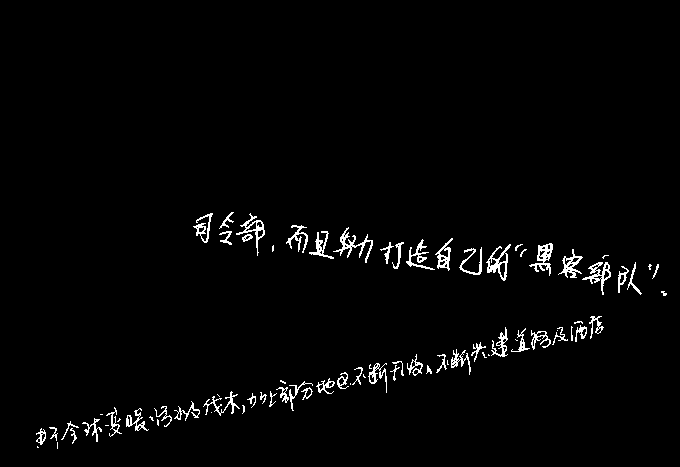 司令部，而且努力打造自己的“黑客部队”。
由于全球变暖，污水及伐木，加上部分地区不断开发、不断兴建道路及酒店